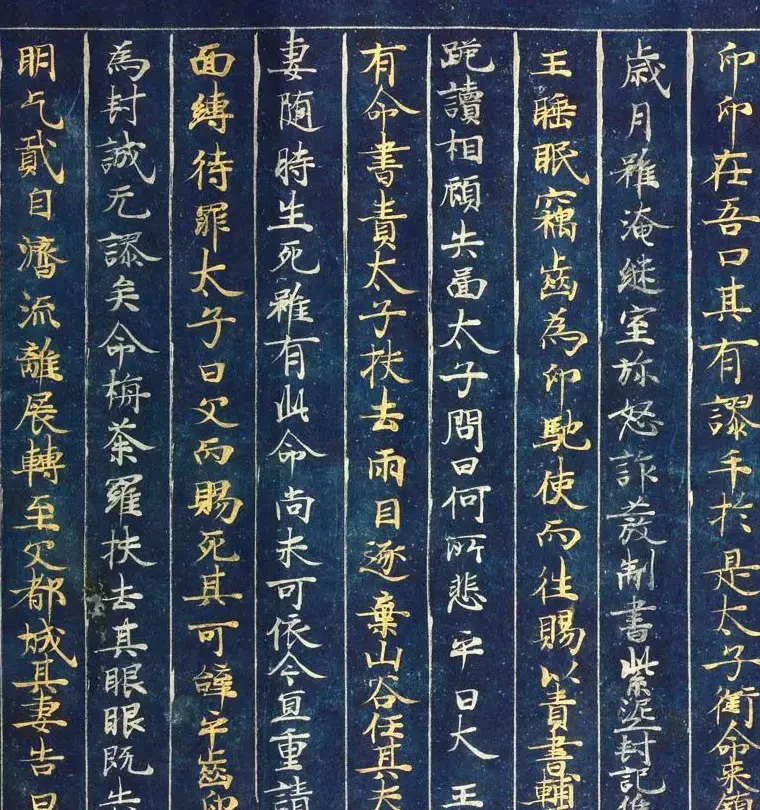 印印在吾口其有謬乎於是太子銜命來鎮
歲月雖淹継室弥怒詐發制書紫泥封記
王睡眠竊齒為印馳使而往賜以責書輔
跪讀相顧失啚太子問曰何所悲乎曰大王
有命書責太子抉去兩目逐棄山谷任其夫
妻随時生死雖有此命尚未可依今宜重請
面縛待罪太子曰父而賜死其可辭乎齒印
為封誠无謬矣命栴荼羅抉去其眼眼既失
明乞貣自濟流離展轉至父都城其妻告曰